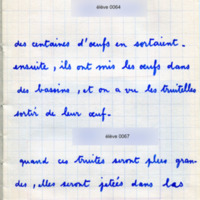 élève 0064
des centaines d'œufs en sortaient.
ensuite, ils ont mis les œufs dans
des bassins, et on a vu les truitelles
sortir de leur œuf.
élève 0067
quand ces truites seront plus gran-
des, elles seront jetées dans les